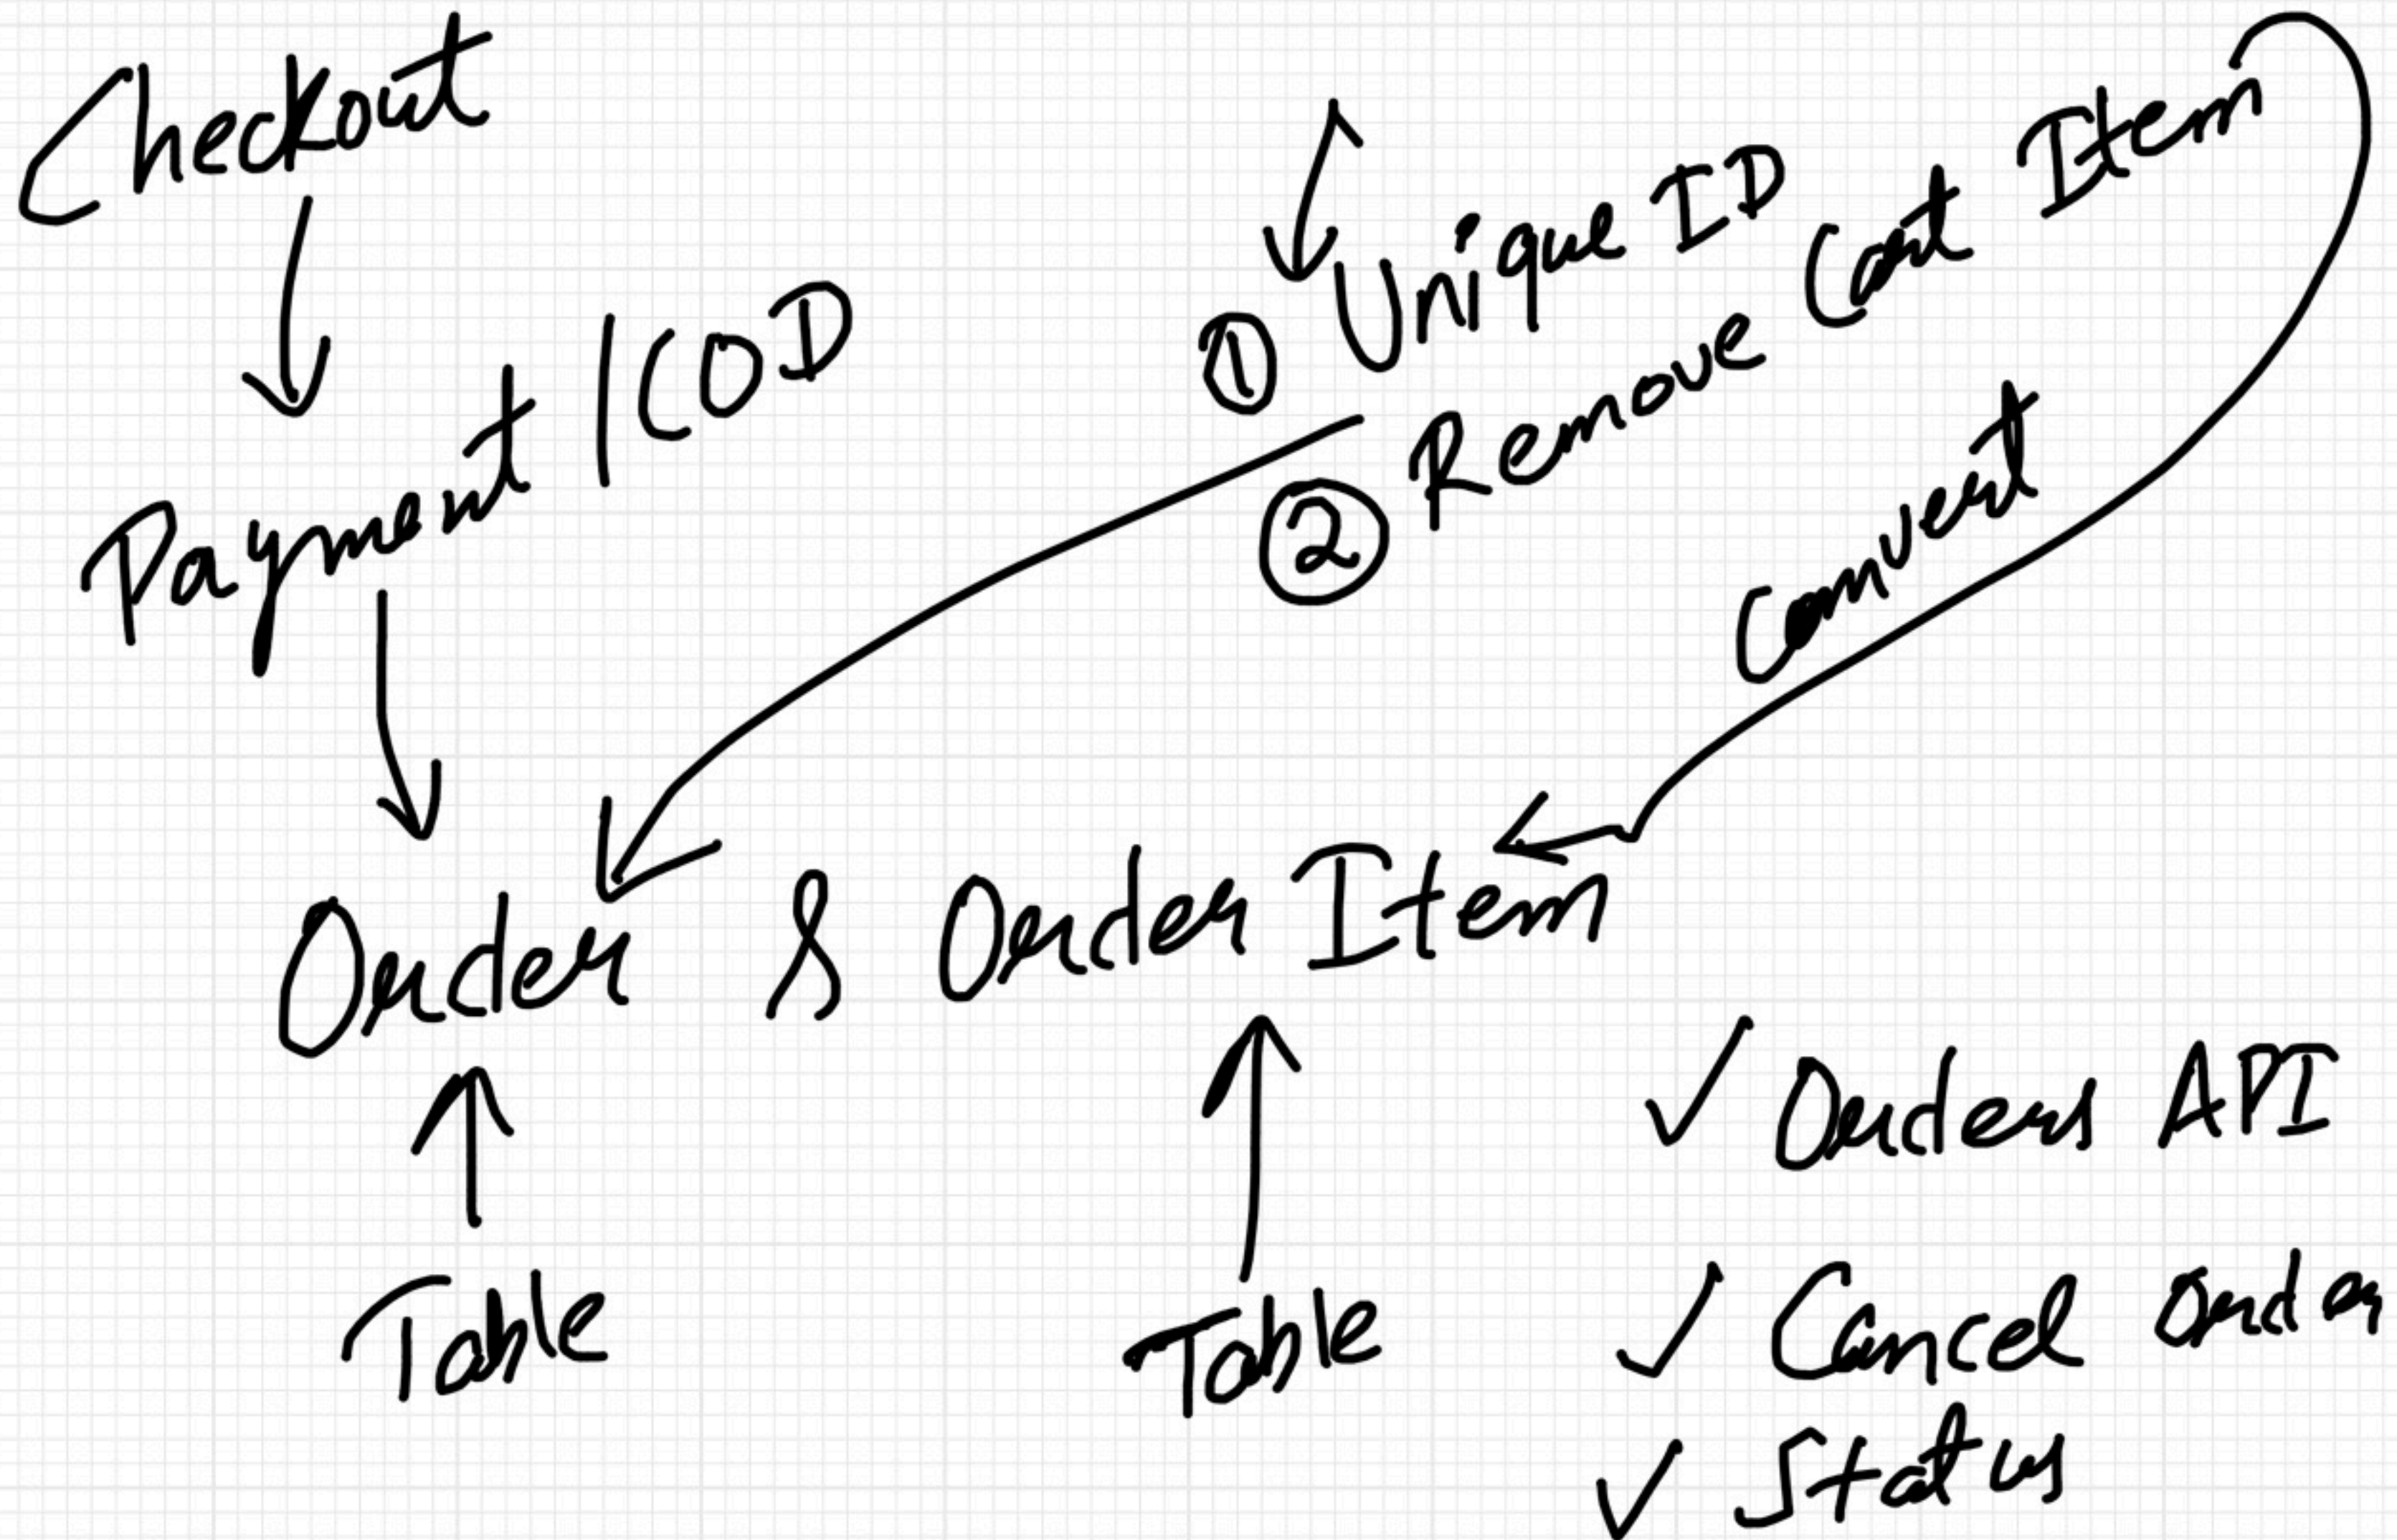 Checkout
Payment | COD
① Unique ID
② Remove Cart Item
Convert
Order & Order Item
Table
Table
✓ Orders API
✓ Cancel Order
✓ Status